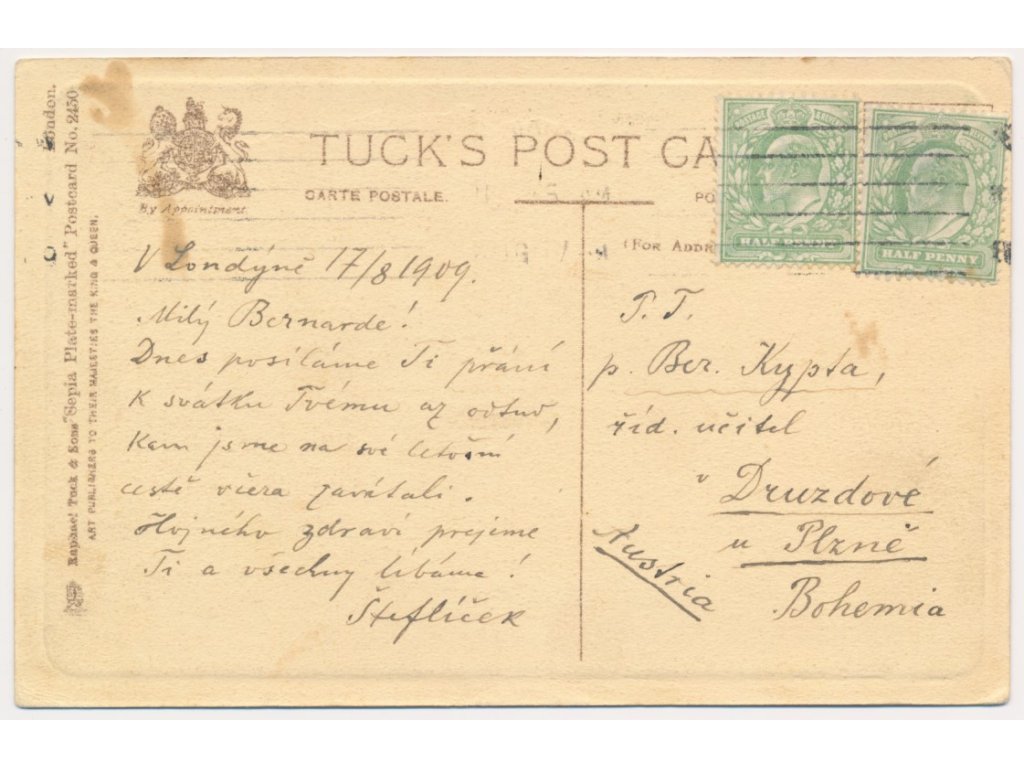 London.
Raphael Tuck & Sons' "Sepia Plate-marked" Postcard No. 2450
ART PUBLISHERS TO THEIR MAJESTIES THE KING & QUEEN.
By Appointment
TUCK'S POST CA
CARTE POSTALE.
PO
(FOR ADDR
POSTAGE
HALF PENNY
HALF PENNY
V Londýně 17/8 1909.
Milý Bernarde!
Dnes posíláme Ti přání
k svátku Tvému až odtud,
kam jsme na své letošní
cestě včera zavátali.
Hojného zdraví přejeme
Ti a všechny líbáme!
Šteflíček
P. T.
p. Ber. Kypta,
říd. učitel
v Druzdové
u Plzně
Austria
Bohemia